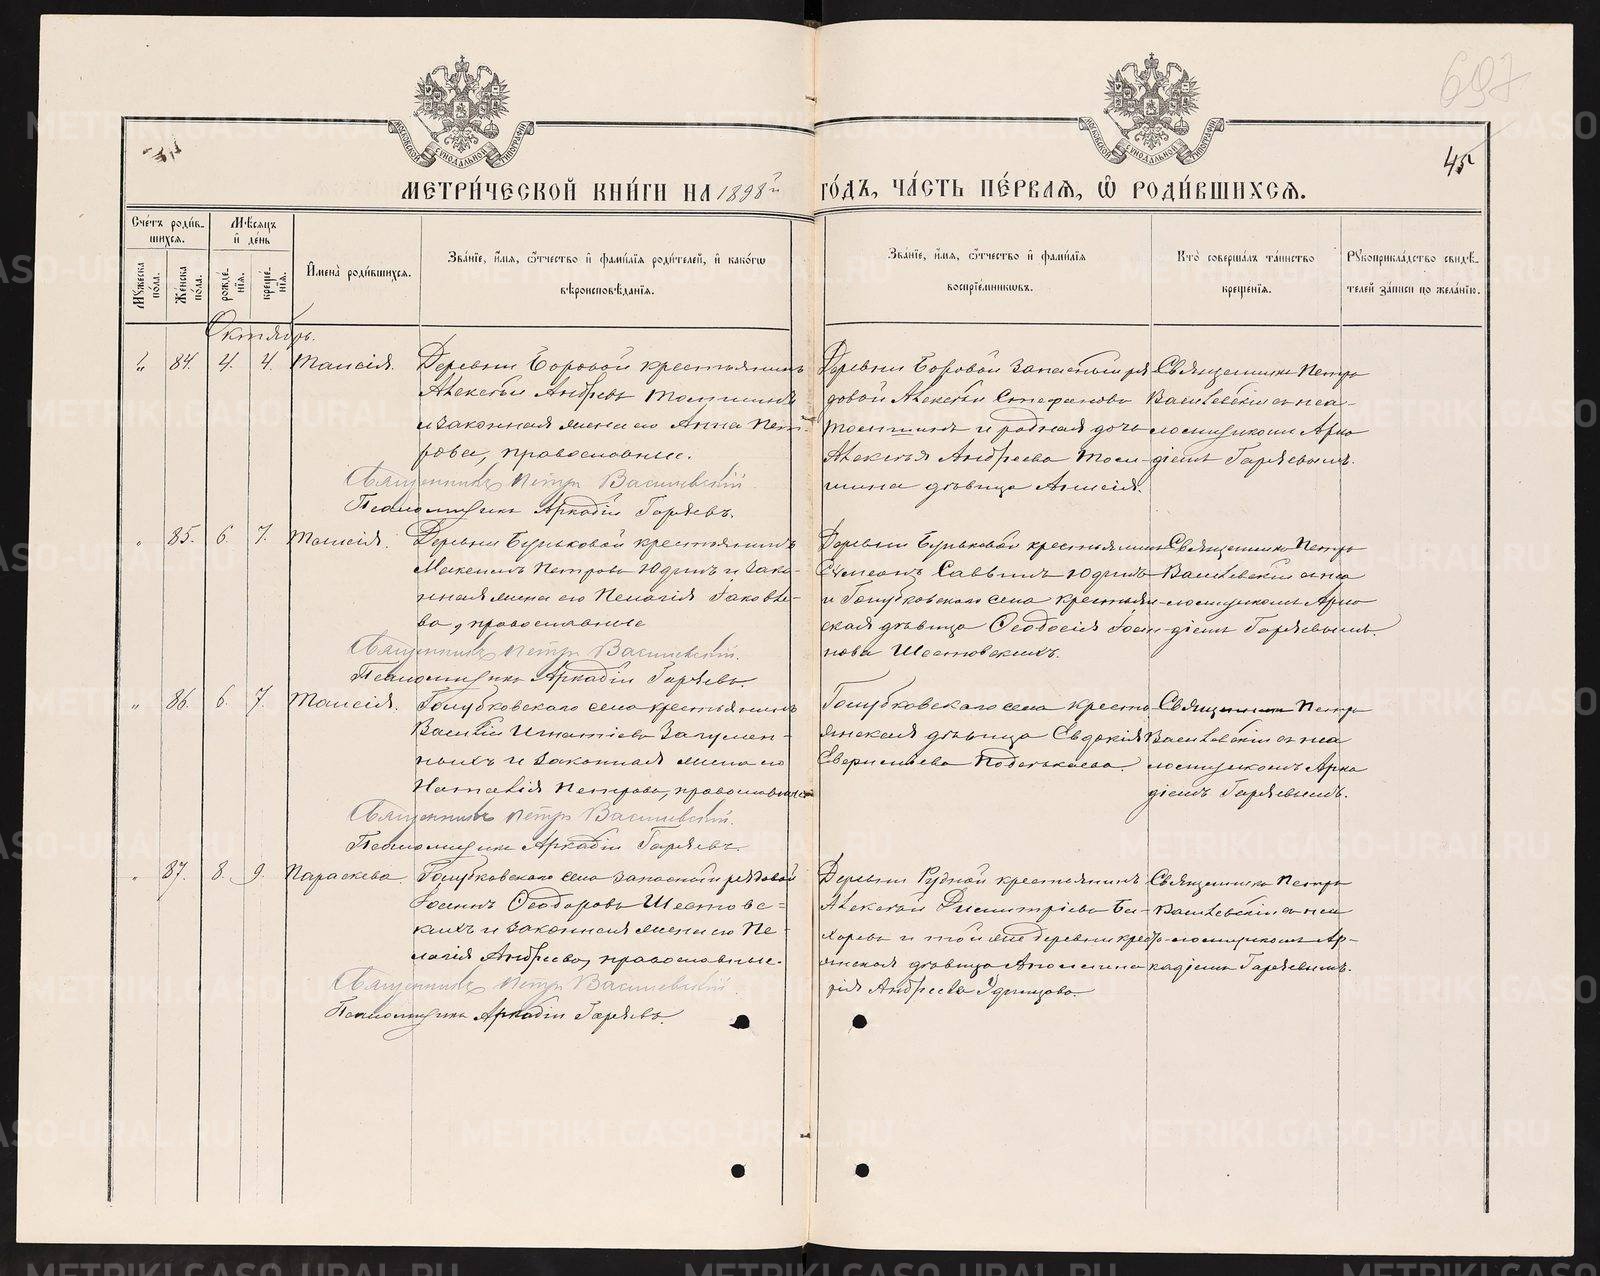 697
45
МОСКОВСКОЙ СѴНОДАЛЬНОЙ ТИПОГРАФІИ
МОСКОВСКОЙ СѴНОДАЛЬНОЙ ТИПОГРАФІИ
МЕТРИ́ЧЕСКОЙ КНИ́ГИ НА 1898й ГО́ДЪ, ЧА́СТЬ ПЕ́РВАѦ, Ѽ РОДИ́ВШИХСѦ.
Сче́тъ роди́в-
шихсѧ.
Мꙋжеска по́ла.
Же́нска по́ла.
Мѣ́сѧцъ
и҆ де́нь
рожде́нїѧ.
креще́нїѧ.
И҆мена̀ роди́вшихсѧ.
Зва́нїе, и҆́мѧ, ѻ҆́тчество и҆ фами́лїѧ роди́телей, и҆ како́гѡ
вѣроисповѣ́данїѧ.
Зва́нїе, и҆́мѧ, ѻ҆́тчество и҆ фами́лїѧ
воспрїе́мникѡвъ.
Кто̀ соверша́лъ та́инство
креще́нїѧ.
Рꙋкоприкла́дство свидѣ́-
телей за́писи по жела́нїю.
Октябрь.
„ 84. 4. 4. Таисія.
Деревни Боровой крестьянинъ
Алексѣй Андреевъ
и законная жена его Анна Пет-
рова, православные.
Священникъ Петръ Василевскій.
Псаломщикъ Аркадій Гаряевъ.
Деревни Боровой запасный ря-
довой Алексѣй Стефановъ
и родная дочь
Алексѣя Андреева
дѣвица Анисія.
Священникъ Петръ
Василевскій съ пса-
ломщикомъ Арка-
діемъ Гаряевымъ.
„ 85. 6. 7. Таисія.
Деревни Бучьковой крестьянинъ
Максимъ Петровъ Юдинъ и зако-
нная жена его Пелагія Іаковле-
ва, православные
Священникъ Петръ Василевскій.
Псаломщикъ Аркадій Гаряевъ.
Деревни Бучьковой крестьянинъ
Сѵмеонъ Саввинъ Юдинъ
и Голубковскаго села крестьян-
ская дѣвица Ѳеодосія Іоан-
нова Шестовскихъ.
Священникъ Петръ
Василевскій съ пса-
ломщикомъ Арка-
діемъ Гаряевымъ.
„ 86. 6. 7. Таисія.
Голубковскаго села крестьянинъ
Василій Игнатіевъ Загумен-
ныхъ и законная жена его
Наталія Петрова, православные
Священникъ Петръ Василевскій.
Псаломщикъ Аркадій Гаряевъ.
Голубковскаго села кресть-
янская дѣвица Евдокія
Священникъ Петръ
Василевскій съ пса-
ломщикомъ Арка-
діемъ Гаряевымъ.
„ 87. 8. 9. Параскева.
Голубковскаго села запасный рядовой
Іоаннъ Ѳеодоровъ Шестовс-
кихъ и законная жена его Пе-
лагія Андреева, православные.
Священникъ Петръ Василевскій.
Псаломщикъ Аркадій Гаряевъ.
Деревни Рудной крестьянинъ
Алексѣй Димитріевъ Бу-
харевъ и той же деревни кресть-
янская дѣвица Аполлина-
рія Андреева
Священникъ Петръ
Василевскій съ пса-
ломщикомъ Ар-
кадіемъ Гаряевымъ.
METRIKI.GASO-URAL.RU